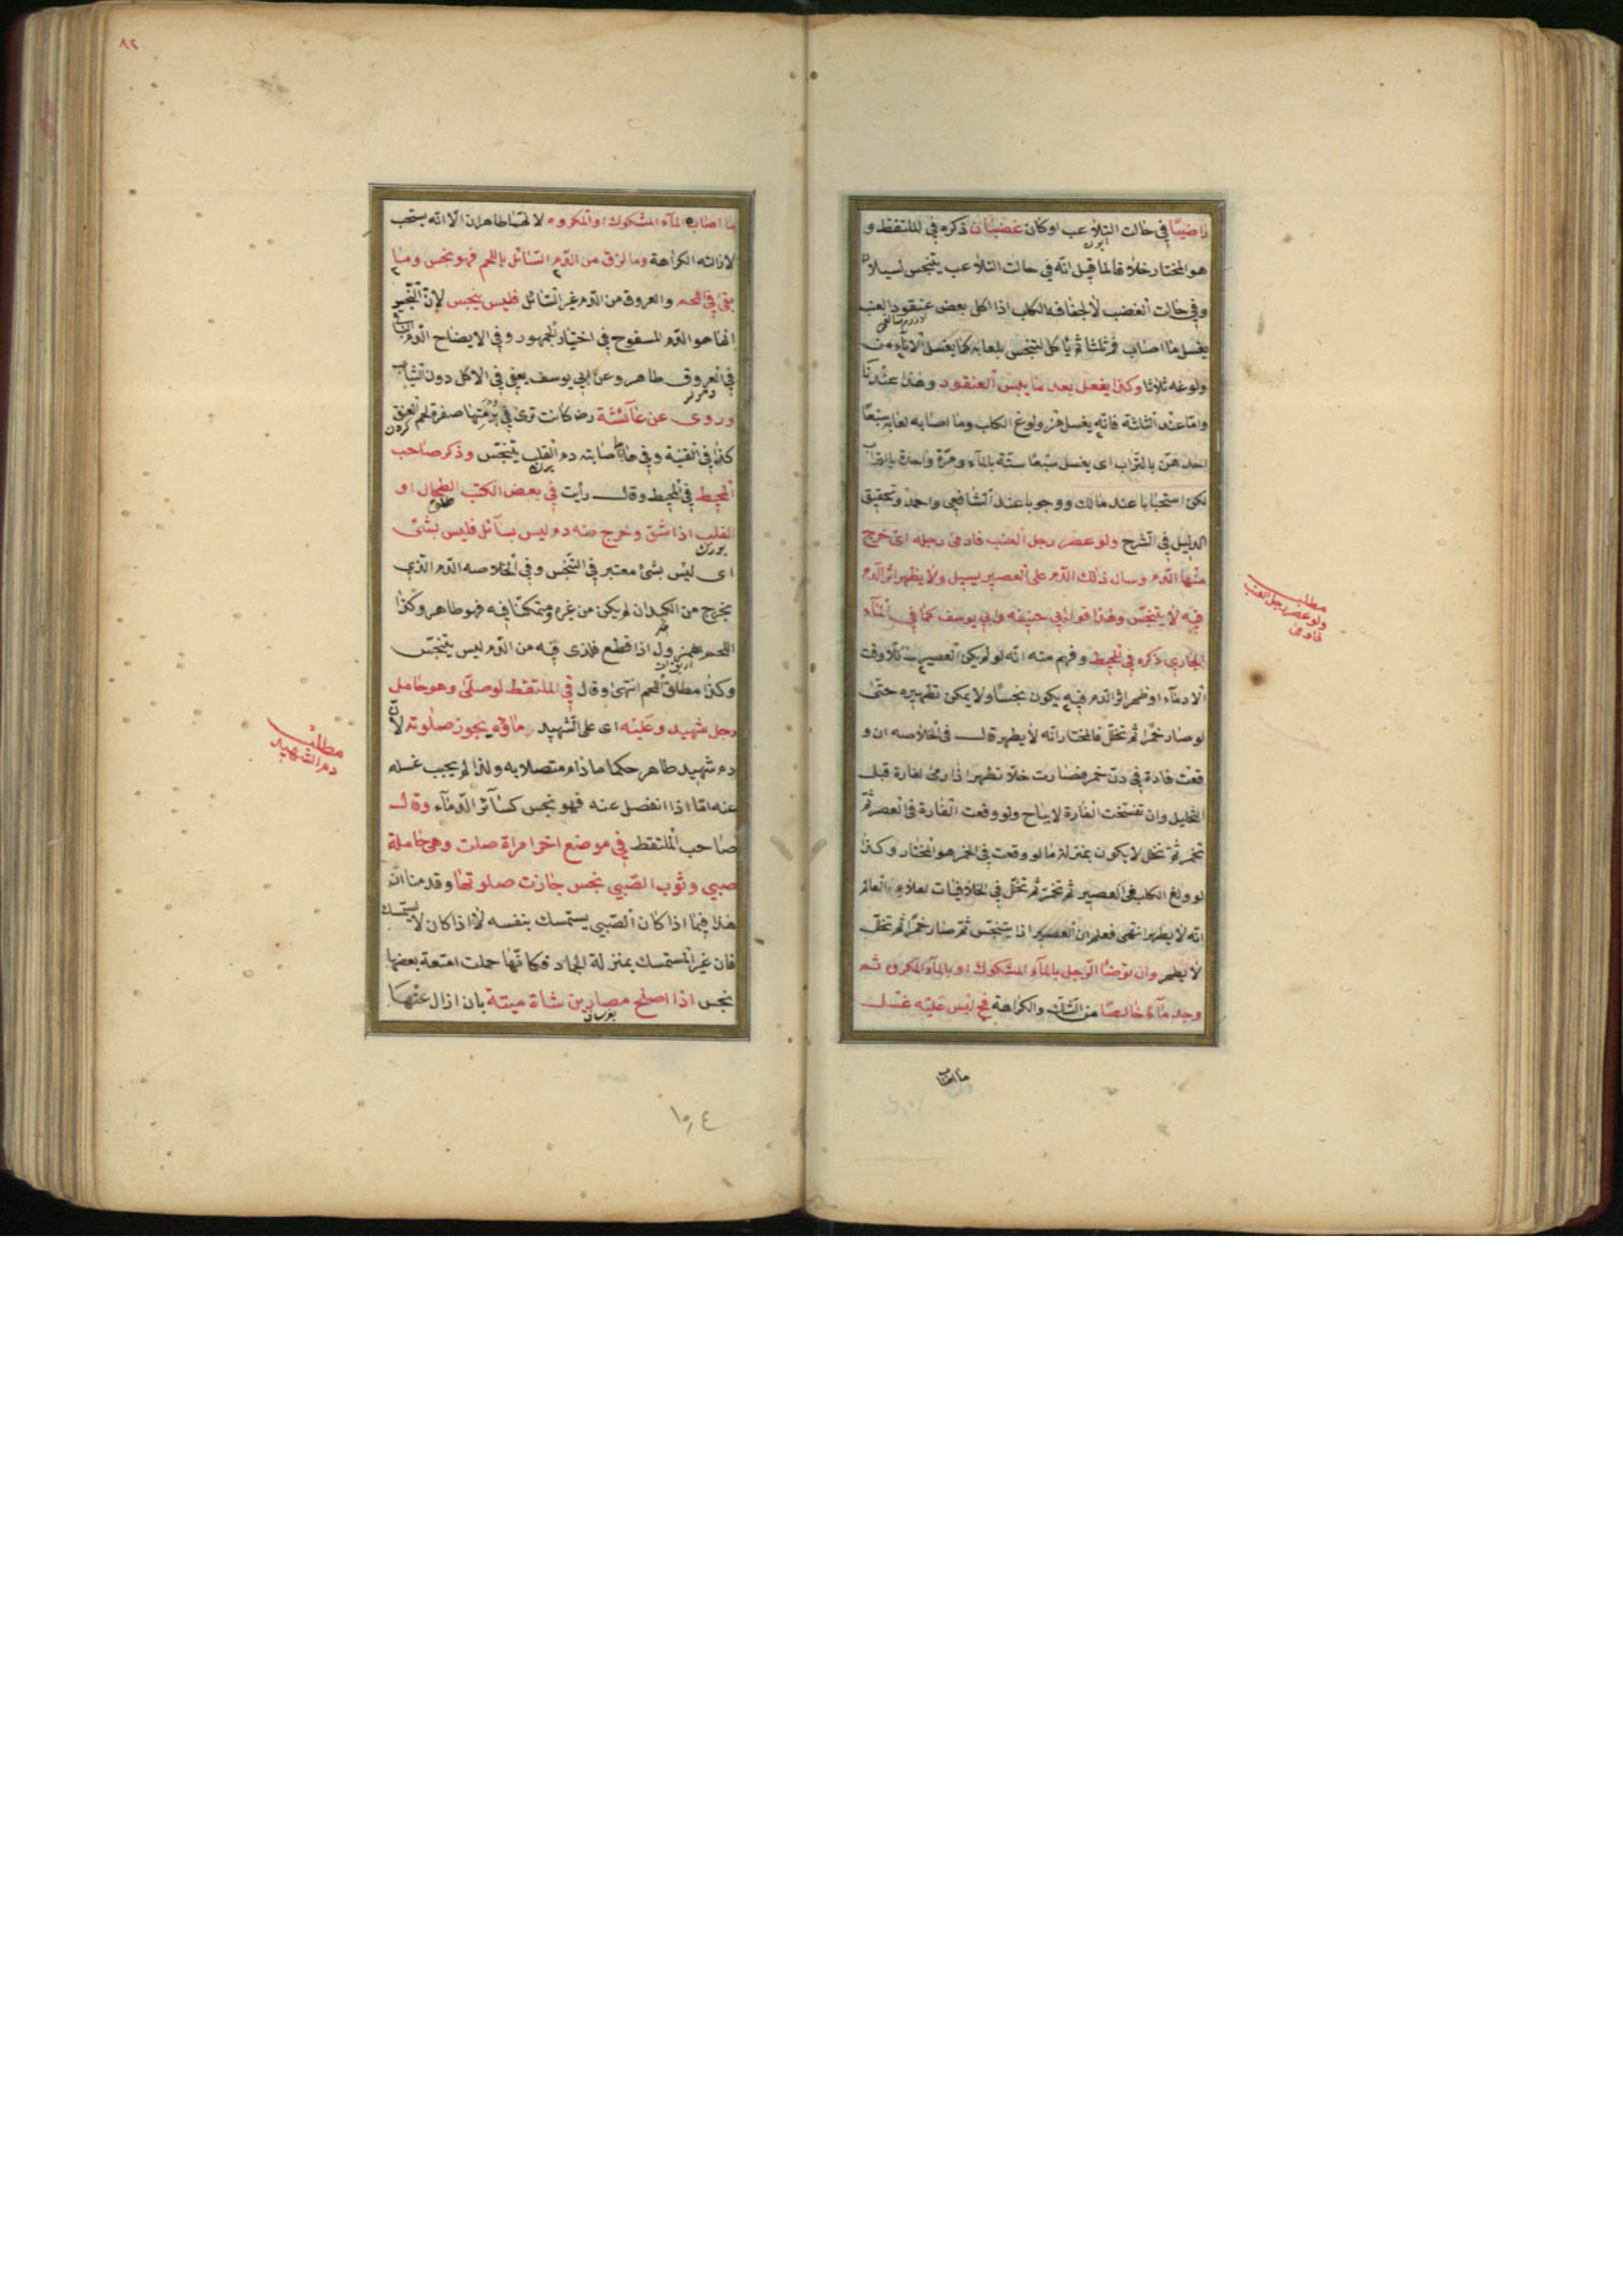 راضيا في حالت التلاعب او كان غضبان ذكره في الملتقط و
هو المختار خلافا لما قيل انه في حالت التلاعب يتنجس لسيلانه
وفي حالت الغضب لا لجفافه الكلب اذا اكل بعض عنقود العنب
يغسل ما اصاب فمه ثلثا ثم يأكل لتنجس بلعابه كما يغسل الاناء من
ولوغه ثلاثا وكذا يفعل بعد ما يبس العنقود وهذا عندنا
واما عند الثلثة فانه يغسل من ولوغ الكلب وما اصابه لعابه سبعا
احدهن بالتراب اى يغسل سبعا ستة بالماء ومرة واحدة بالتراب
لكن استحبابا عند مالك ووجوبا عند الشافعي واحمد وتحقيق
الدليل في الشرح ولو عصر رجل العنب فادمى رجله اى خرج
منها الدم وسال ذلك الدم على العصير يسيل ولا يظهر اثر الدم
فيه لا يتنجس وهذا قول ابي حنيفه وابي يوسف كما في الماء
الجاري ذكره في المحيط وفهم منه انه لو لم يكن العصير سائلا وقت
الادماء او ظهر اثر الدم فيه يكون نجسا ولا يمكن تطهيره حتى
لو صار خمرا ثم تخلل فالمختار انه لا يطهر قال في الخلاصه ان و
قعت فارة في دن خمر فصارت خلا تطهر اذا رمى الفارة قبل
التخليل وان تفسخت الفارة لا يباح ولو وقعت الفارة في العصير ثم
تخمر ثم تخلل لا يكون بمنزلة ما لو وقعت في الخمر هو المختار وكذا
لو ولغ الكلب في العصير ثم تخمر ثم تخلل في الخلافيات لعلاء العالم
انه لا يطهر انتهى فعلم ان العصير اذا يتنجس ثم صار خمرا ثم تخلل
لا يطهر وان توضأ الرجل بالماء المشكوك او بالماء المكروه ثم
وجد ماء خالصا من الشك والكراهة فح ليس عليه غسل
ما اصاب
مطلب
ولو عصر رجل العنب
فادمى
٨٢
ما اصابه الماء المشكوك او المكروه لانهما طاهران الا انه يستحب
لازالته الكراهة وما لزق من الدم السائل باللحم فهو نجس وما
بقى في اللحم والعروق من الدم غير السائل فليس بنجس لان النجس
انما هو الدم المسفوح في اختيار الجمهور وفي الايضاح الدم الباقي
في العروق طاهر وعن ابي يوسف يعفى في الاكل دون الثياب
وروى عن عائشة رض كانت ترى في برمتها صفرة لحم العنق
كذا في القنية وفي خا اصابته دم القلب يتنجس وذكر صاحب
المحيط في المحيط وقال رأيت في بعض الكتب الطحال او
القلب اذا شق وخرج منه دم ليس بسائل فليس بشئ
اى ليس بشئ معتبر في التنجس وفي الخلاصه الدم الذي
يخرج من الكبد ان لم يكن من غيره متمكنا فيه فهو طاهر وكذا
اللحم المهزول اذا قطع فلذى فيه من الدم ليس يتنجس
وكذا مطلق اللحم انتهى وقال في الملتقط لو صلى وهو حامل
رجل شهيد وعليه اى على الشهيد دمائه يجوز صلوته لان
دم شهيد طاهر حكما ما دام متصلا به ولذا لم يجب غسله
عنه اما اذا انفصل عنه فهو نجس كسائر الدماء وقال
صاحب الملتقط في موضع اخر امراة صلت وهى حاملة
صبي وثوب الصبي نجس جازت صلوتها وقدمنا ان
هذا فيما اذا كان الصبي يستمسك بنفسه لا اذا كان لا يستمسك
فان غير المستمسك بمنزلة الجماد فكانها حملت امتعة بعضها
نجس اذا اصلح مصارين شاة ميتة بان ازال عنها
مطلب
دم الشهيد
١٠٤